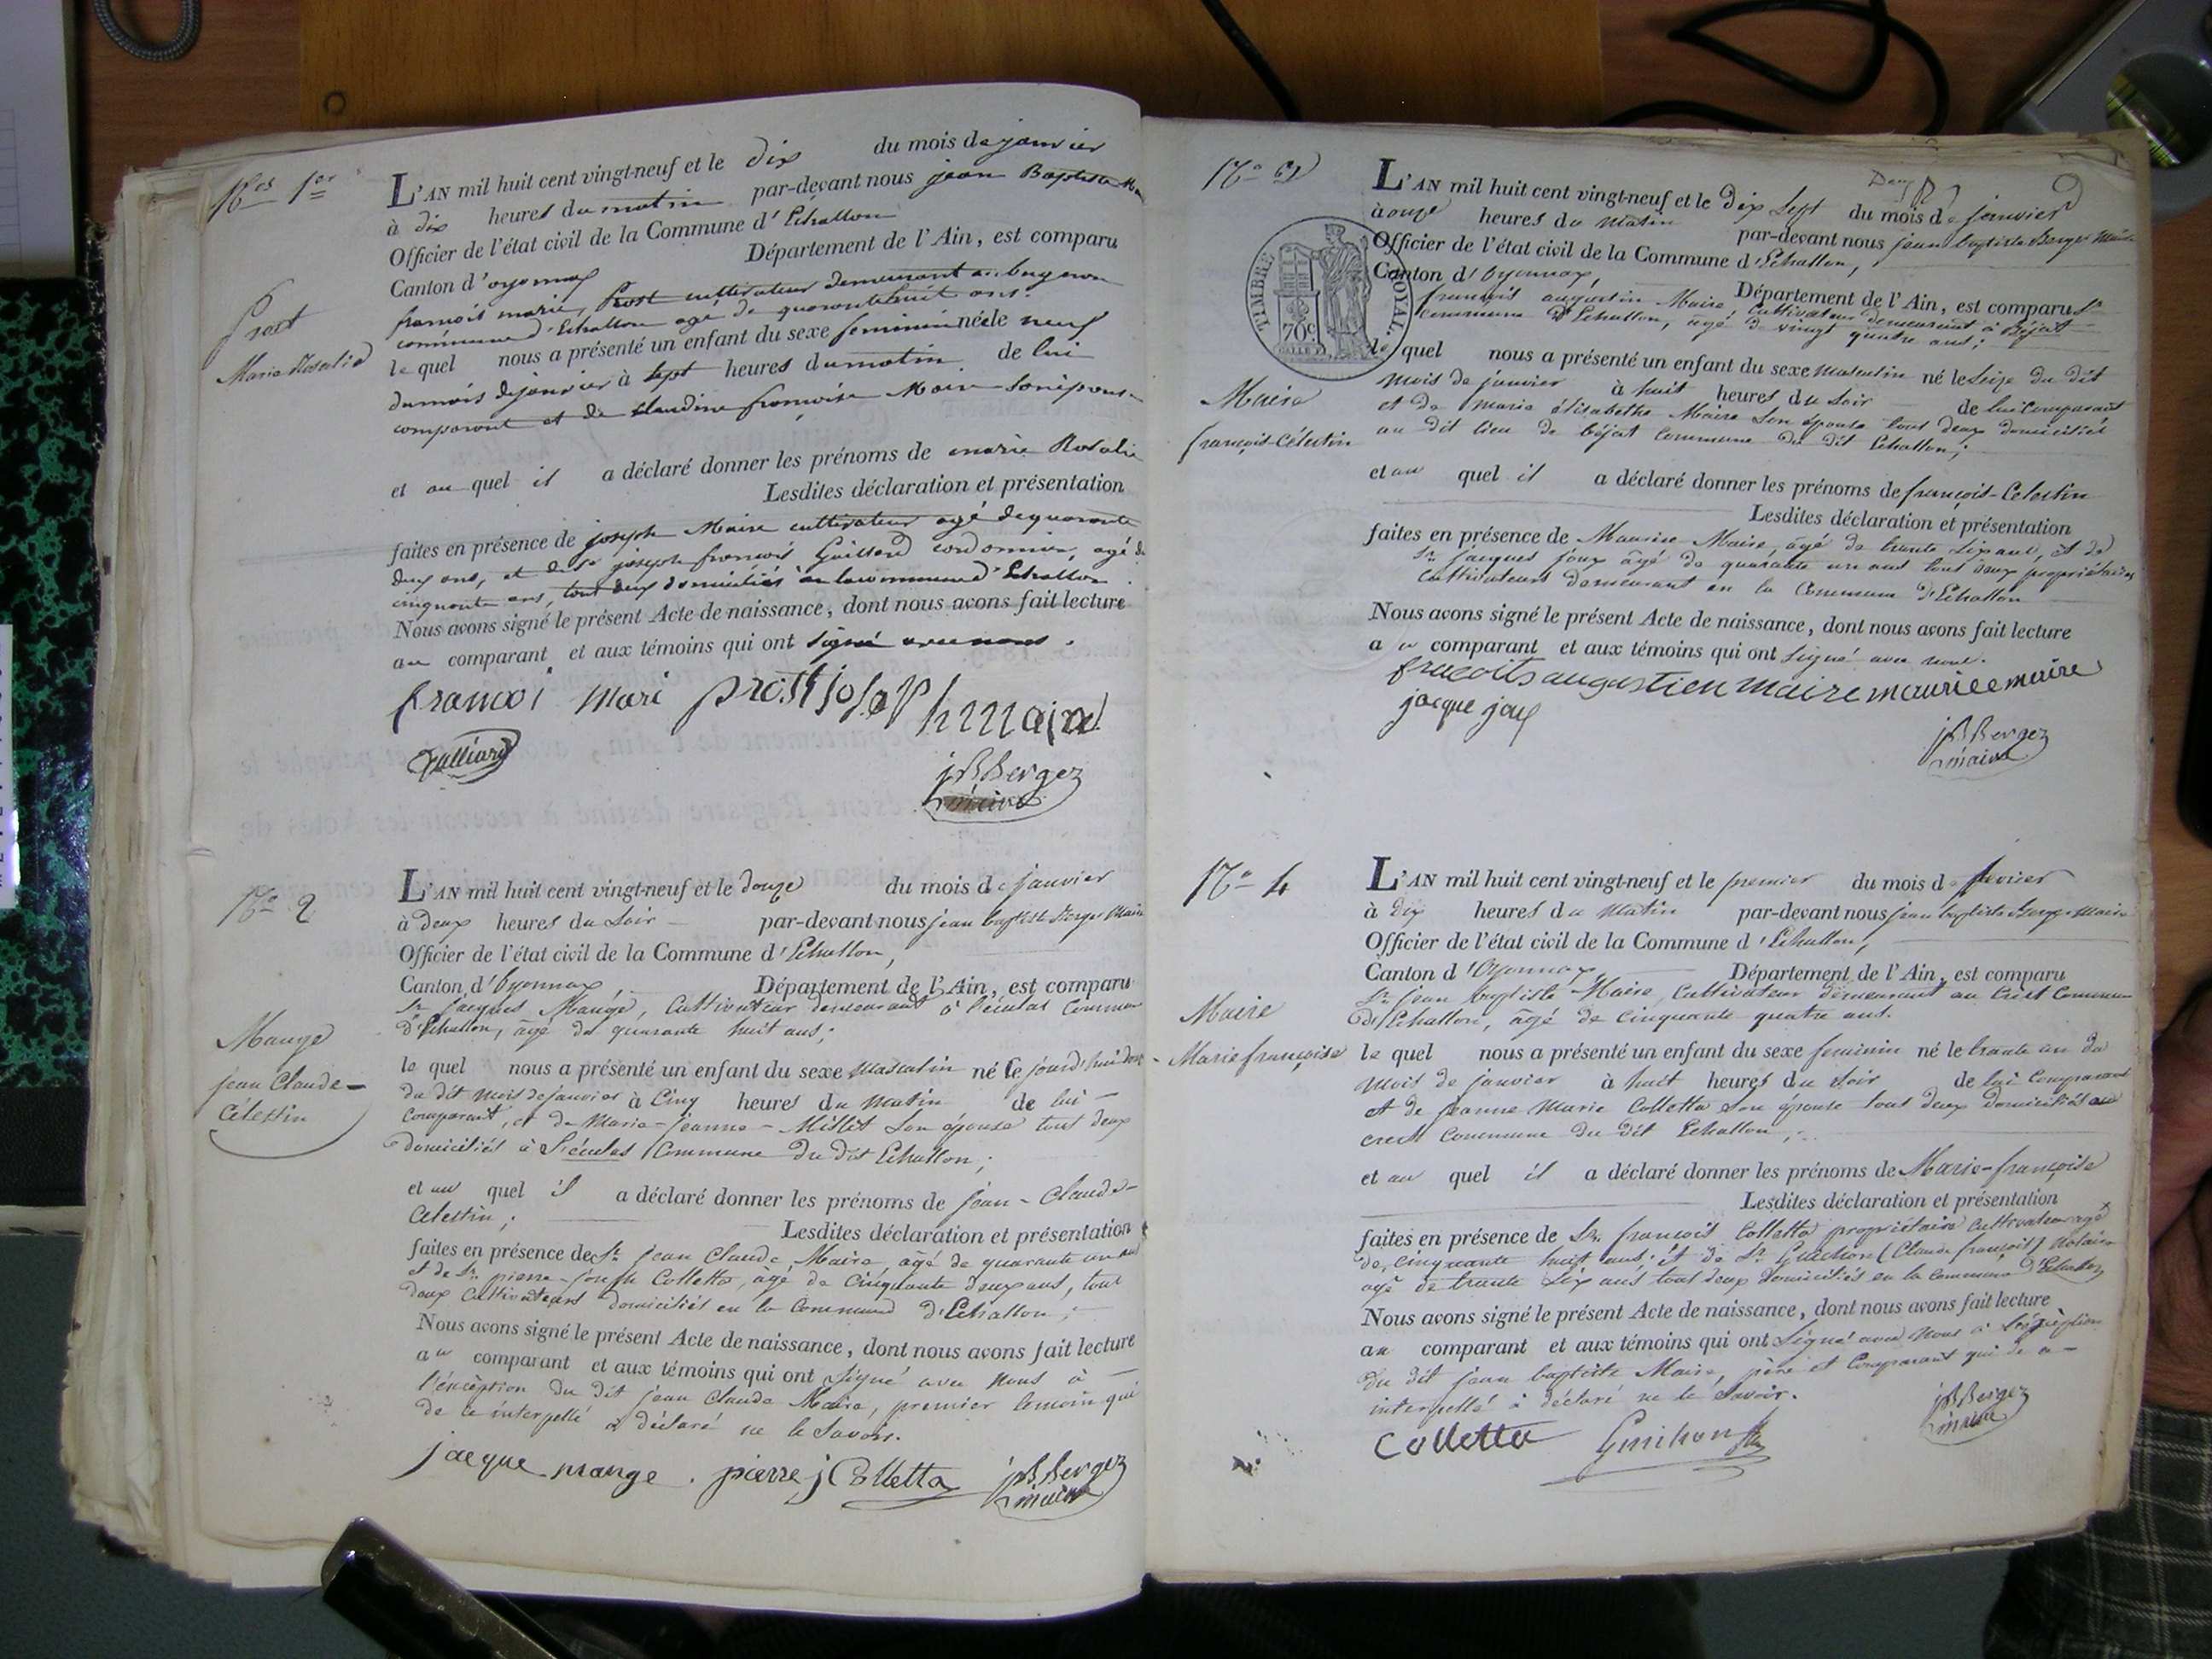 Nos 1er
Prost
Marie Rosalie
L'AN mil huit cent vingt-neuf et le dix du mois de janvier
à dix heures du matin par-devant nous jean Baptiste
Officier de l'état civil de la Commune d'Echallon
Canton d'oyonnax Département de l'Ain, est comparu
françois marie, Prost cultivateur demeurant au
commune d'Echallon agé de quarante huit ans.
le quel nous a présenté un enfant du sexe feminin née le neuf
du mois de janvier à sept heures du matin de lui
comparant et de Claudine françoise Maire son épouse
et au quel il a déclaré donner les prénoms de marie Rosalie
Lesdites déclaration et présentation
faites en présence de joseph Maire cultivateur agé de quarante
deux ans, et de joseph françois Gaillard cordonnier, agé de
cinquante ans, tout deux domiciliés en la commune d'Echallon
Nous avons signé le présent Acte de naissance, dont nous avons fait lecture
au comparant et aux témoins qui ont signé avec nous.
francoi mari prost joseph maire
Galliard
jB Berger
maire
No 2
Mange
jean Claude-
Célestin
L'AN mil huit cent vingt-neuf et le douze du mois de janvier
à deux heures du Soir par-devant nous jean baptiste Berger Maire
Officier de l'état civil de la Commune d'Echallon,
Canton d'Oyonnax, Département de l'Ain, est comparu
Sr jacques Mange, Cultivateur demeurant à Siéculas Commune
d'Echallon, âgé de quarante huit ans;
le quel nous a présenté un enfant du sexe Masculin né le jourd'hui douze
du dit mois de janvier à Cinq heures du Matin de lui
comparant, et de Marie-jeanne-Millet Son épouse tout deux
domiciliés à Siéculas Commune du dit Echallon;
et au quel il a déclaré donner les prénoms de jean-Claude-
Célestin; Lesdites déclaration et présentation
faites en présence de Sr jean Claude Maire, âgé de quarante un ans
et de Sr pierre-joseph Colletta, âgé de Cinquante deux ans, tout
deux Cultivateurs domiciliés en la Commune d'Echallon;
Nous avons signé le présent Acte de naissance, dont nous avons fait lecture
au comparant et aux témoins qui ont Signé avec Nous à
l'éxcéption du dit jean Claude Maire, premier temoin qui
de ce interpellé a déclaré ne le Savoir.
jacque mange. pierre j Colletta jB Berger
maire
No 3
Maire
françois Célestin
TIMBRE ROYAL
70c
L'AN mil huit cent vingt-neuf et le dix Sept du mois de janvier
à onze heures du Matin par-devant nous jean baptiste Berger Maire
Officier de l'état civil de la Commune d'Echallon,
Canton d'Oyonnax, Département de l'Ain, est comparu Sr
françois augustin Maire Cultivateur demeurant à Béjat
commune d'Echallon, âgé de vingt quatre ans;
le quel nous a présenté un enfant du sexe Masculin né le Seize du dit
Mois de janvier à huit heures du Soir de lui Comparant
et de Marie élisabethe Maire Son épouse tout deux domiciliés
au dit lieu de béjat Commune du dit Echallon;
et au quel il a déclaré donner les prénoms de françois-Célestin
Lesdites déclaration et présentation
faites en présence de Maurise Maire, âgé de trante Six ans, et de
Sr jacques joux âgé de quarante un ans tout deux propriétaires
Cultivateurs demeurant en la Commune d'Echallon
Nous avons signé le présent Acte de naissance, dont nous avons fait lecture
au comparant et aux témoins qui ont Signé avec nous.
francoits augustien maire mauricee maire
jacque joux
jB Berger
maire
No 4
Maire
Marie françoise
L'AN mil huit cent vingt-neuf et le premier du mois de fevrier
à dix heures du Matin par-devant nous jean baptiste Berger Maire
Officier de l'état civil de la Commune d'Echallon,
Canton d'Oyonnax, Département de l'Ain, est comparu
Sr jean baptiste Maire, Cultivateur demeurant au Crêt Commune
d'Echallon, âgé de Cinquante quatre ans.
le quel nous a présenté un enfant du sexe feminin né le trante un du
Mois de janvier à huit heures du Soir de lui Comparant
et de jeanne Marie Colletta Son épouse tout deux domiciliés au
crest Commune du dit Echallon;
et au quel il a déclaré donner les prénoms de Marie-françoise
Lesdites déclaration et présentation
faites en présence de Sr. françois Colletta propriétaire Cultivateur agé
de Cinquante huit ans; et de Sr Guichon (Claude françois) Notaire
agé de trante Six ans tout deux domiciliés en la Commune d'Echallon
Nous avons signé le présent Acte de naissance, dont nous avons fait lecture
au comparant et aux témoins qui ont Signé avec Nous à l'éxcéption
du dit jean baptiste Maire, père et Comparant qui de ce
interpellé à déclaré ne le Savoir.
Colletta Guichon
jB Berger
maire